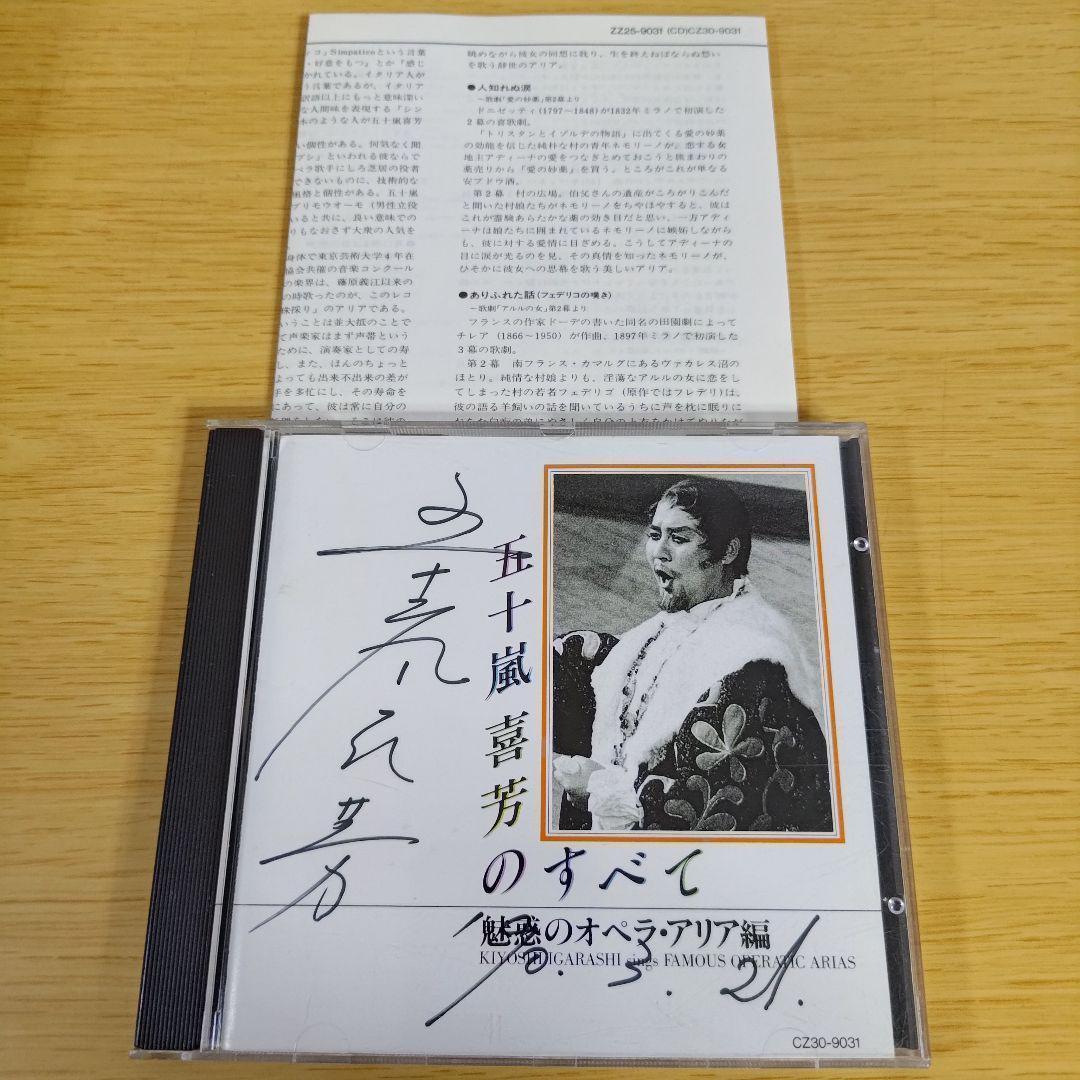 ZZ25-9031 (CD)CZ30-9031
コ」Simpaticoという言葉
・好意をもつ』とか『感じ
かれている。イタリア人が
う言葉であるが、イタリア
訳語以上にもっと意味深い
な人間味を表現する『シン
木のような人が五十嵐喜芳
い個性がある。何気なく聞
ブシ」といわれる彼ならで
ペラ歌手にしろ芝居の役者
できないものに、技術的な
風格と個性がある。五十嵐
プリモウオーモ（男性立役
いると共に、良い意味での
りもなおさず大衆の人気を
身体で東京芸術大学4年在
協会共催の音楽コンクール
の楽界は、藤原義江以来の
の時歌ったのが、このレコ
珠採り』のアリアである。
いうことは並大抵のことで
て声楽家はまず声帯という
ために、演奏家としての寿
し、また、ほんのちょっと
よっても出来不出来の差が
手を多忙にし、その寿命を
にあって、彼は常に自分の
眺めながら彼女の回想に耽り、生を終えねばならぬ愁い
を歌う辞世のアリア。
●人知れぬ涙
〜歌劇「愛の妙薬」第2幕より
ドニゼッティ(1797〜1848)が1832年ミラノで初演した
2幕の喜歌劇。
「トリスタンとイゾルデの物語」に出てくる愛の妙薬
の効能を信じた純朴な村の青年ネモリーノが、恋する女
地主アディーナの愛をつなぎとめておこうと旅まわりの
薬売りから「愛の妙薬」を買う。ところがこれが単なる
安ブドウ酒。
第2幕 村の広場。伯父さんの遺産がころがりこんだ
と聞いた村娘たちがネモリーノをちやほやすると、彼は
これが霊験あらたかな薬の効き目だと思い、一方アディ
ーナは娘たちに囲まれているネモリーノに嫉妬しながら
も、彼に対する愛情に目ざめる。こうしてアディーナの
目に涙が光るのを見、その真情を知ったネモリーノが、
ひそかに彼女への思慕を歌う美しいアリア。
●ありふれた話(フェデリコの嘆き)
〜歌劇「アルルの女」第2幕より
フランスの作家ドーデの書いた同名の田園劇によって
チレア（1866〜1950）が作曲、1897年ミラノで初演した
3幕の歌劇。
第2幕 南フランス・カマルグにあるヴァカレス沼の
ほとり。純情な村娘よりも、淫蕩なアルルの女に恋をし
てしまった村の若者フェデリゴ（原作ではフレデリ）は、
彼の語る羊飼いの話を聞いているうちに声を枕に眠りに
五十嵐喜芳
五十嵐喜芳
のすべて
魅惑のオペラ・アリア編
KIYOSHI IGARASHI sings FAMOUS OPERATIC ARIAS
'90.3.21.
CZ30-9031